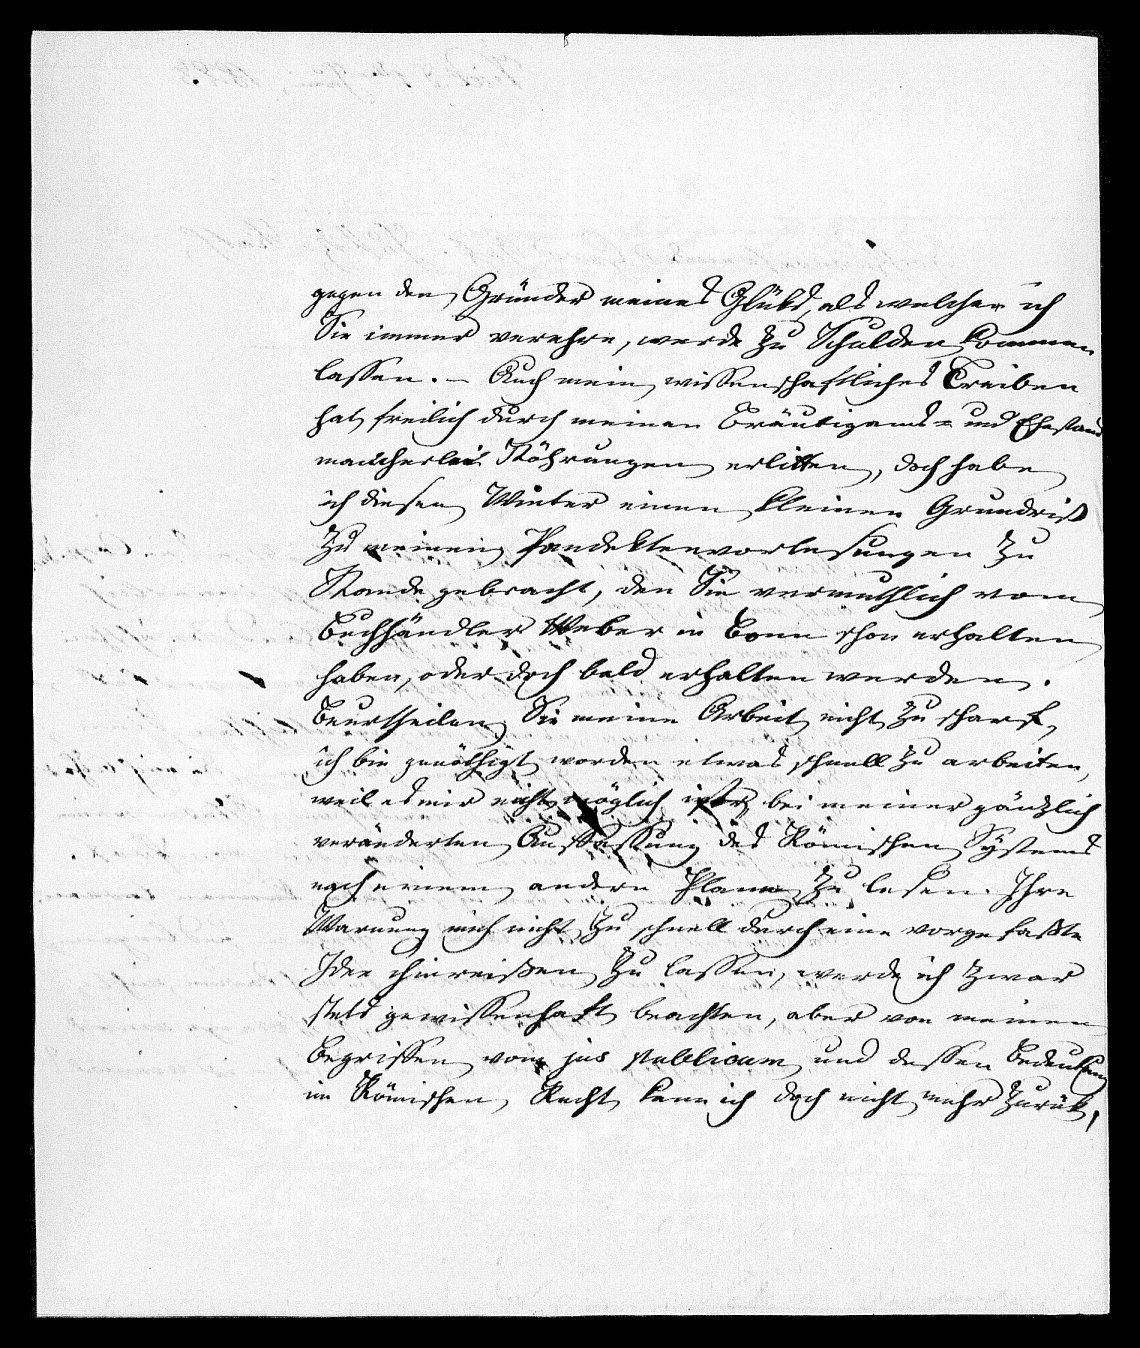 gegen den Gründer meines Glüks, als welchen ich
Sie immer verehre, werde zu Schulden kommen
lassen. – Auch mein wissenschaftliches Treiben
hat freilich durch meinen Bräutigams- und Ehestand
mancherlei Störungen erlitten, doch habe
ich diesen Winter einen kleinen Grundriß
zu meinen Pandektenvorlesungen zu
Stande gebracht, den Sie vermuthlich vom
Buchhändler Weber in Bonn schon erhalten
haben, oder doch bald erhalten werden.
Beurtheilen Sie meine Arbeit nicht zu scharf,
ich bin genöthigt worden etwas schnell zu arbeiten,
weil es mir nicht möglich ist, bei meiner gänzlich
veränderten Auffassung des Römischen Systems
nach einem andern Plane zu lesen. Ihre
Warnung mich nicht zu schnell durch eine vorgefaßte
Idee hinreißen zu lassen, werde ich zwar
stets gewissenhaft beachten, aber von meinen
Begriffen vom jus publicum und dessen Bedeutung
im Römischen Recht kann ich doch nicht mehr zurük,